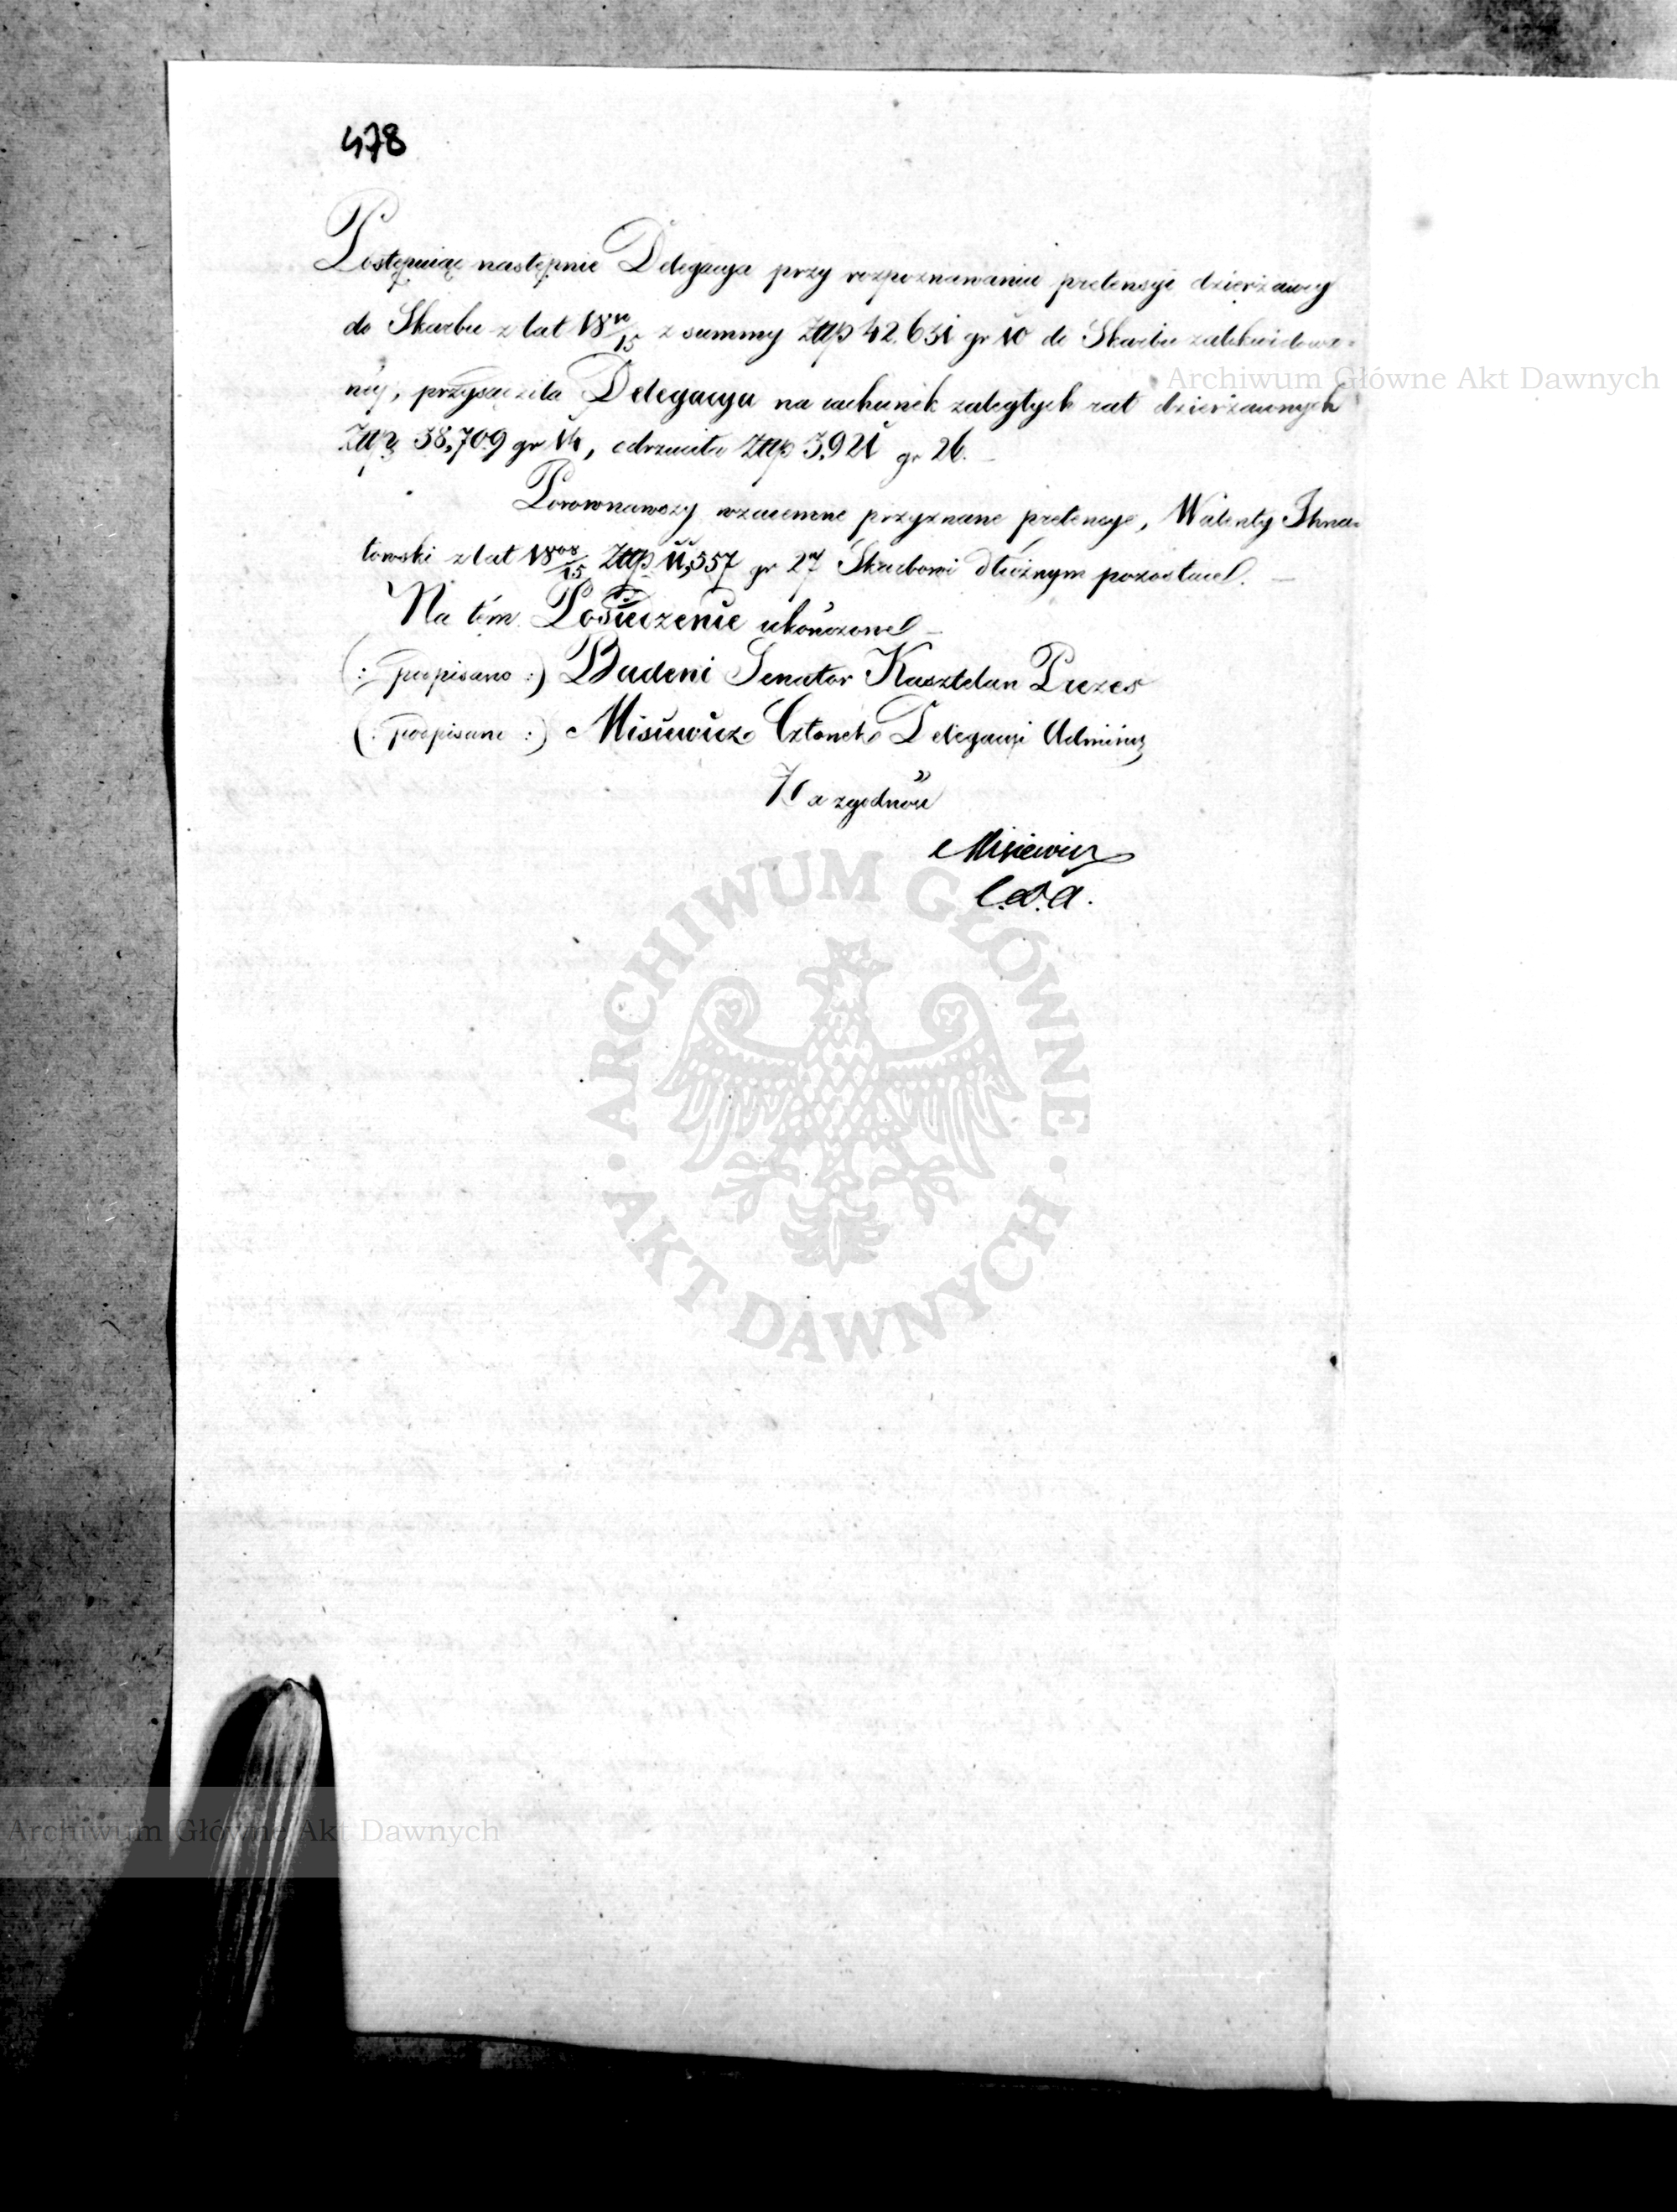 478
Postępuiąc następnie Delegacya przy rozpoznawaniu pretensyi dzierżawcy
do Skarbu z lat 18 10/15 z summy Złłp 42,631 gr 10 do Skarbu zalikwidowa=
néj, przysądziła Delegacya na rachunek zaległych rat dzierżawnych
Złłp 38,709 gr 14, odrzuciła Złłp 3,921 gr 26. —
Porownawszy wzaiemne przyznane pretensye, Walenty Ihna=
towski z lat 18 08/15 Złłp 11,557 gr 27 Skarbowi dłużnym pozostał. —
Na tém Posiedzenie ukończone —
(: podpisano :) Badeni Senator Kasztelan Prezes
(: podpisano :) Misiewicz Członek Delegacyi Adminis
Za zgodność
Misiewicz
C.D.A.
Archiwum Główne Akt Dawnych
ARCHIWUM GŁÓWNE
· AKT DAWNYCH ·
Archiwum Główne Akt Dawnych